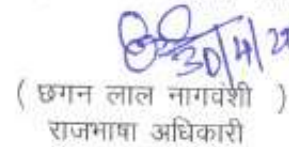 30/4/2
( छगन लाल नागवंशी )
राजभाषा अधिकारी